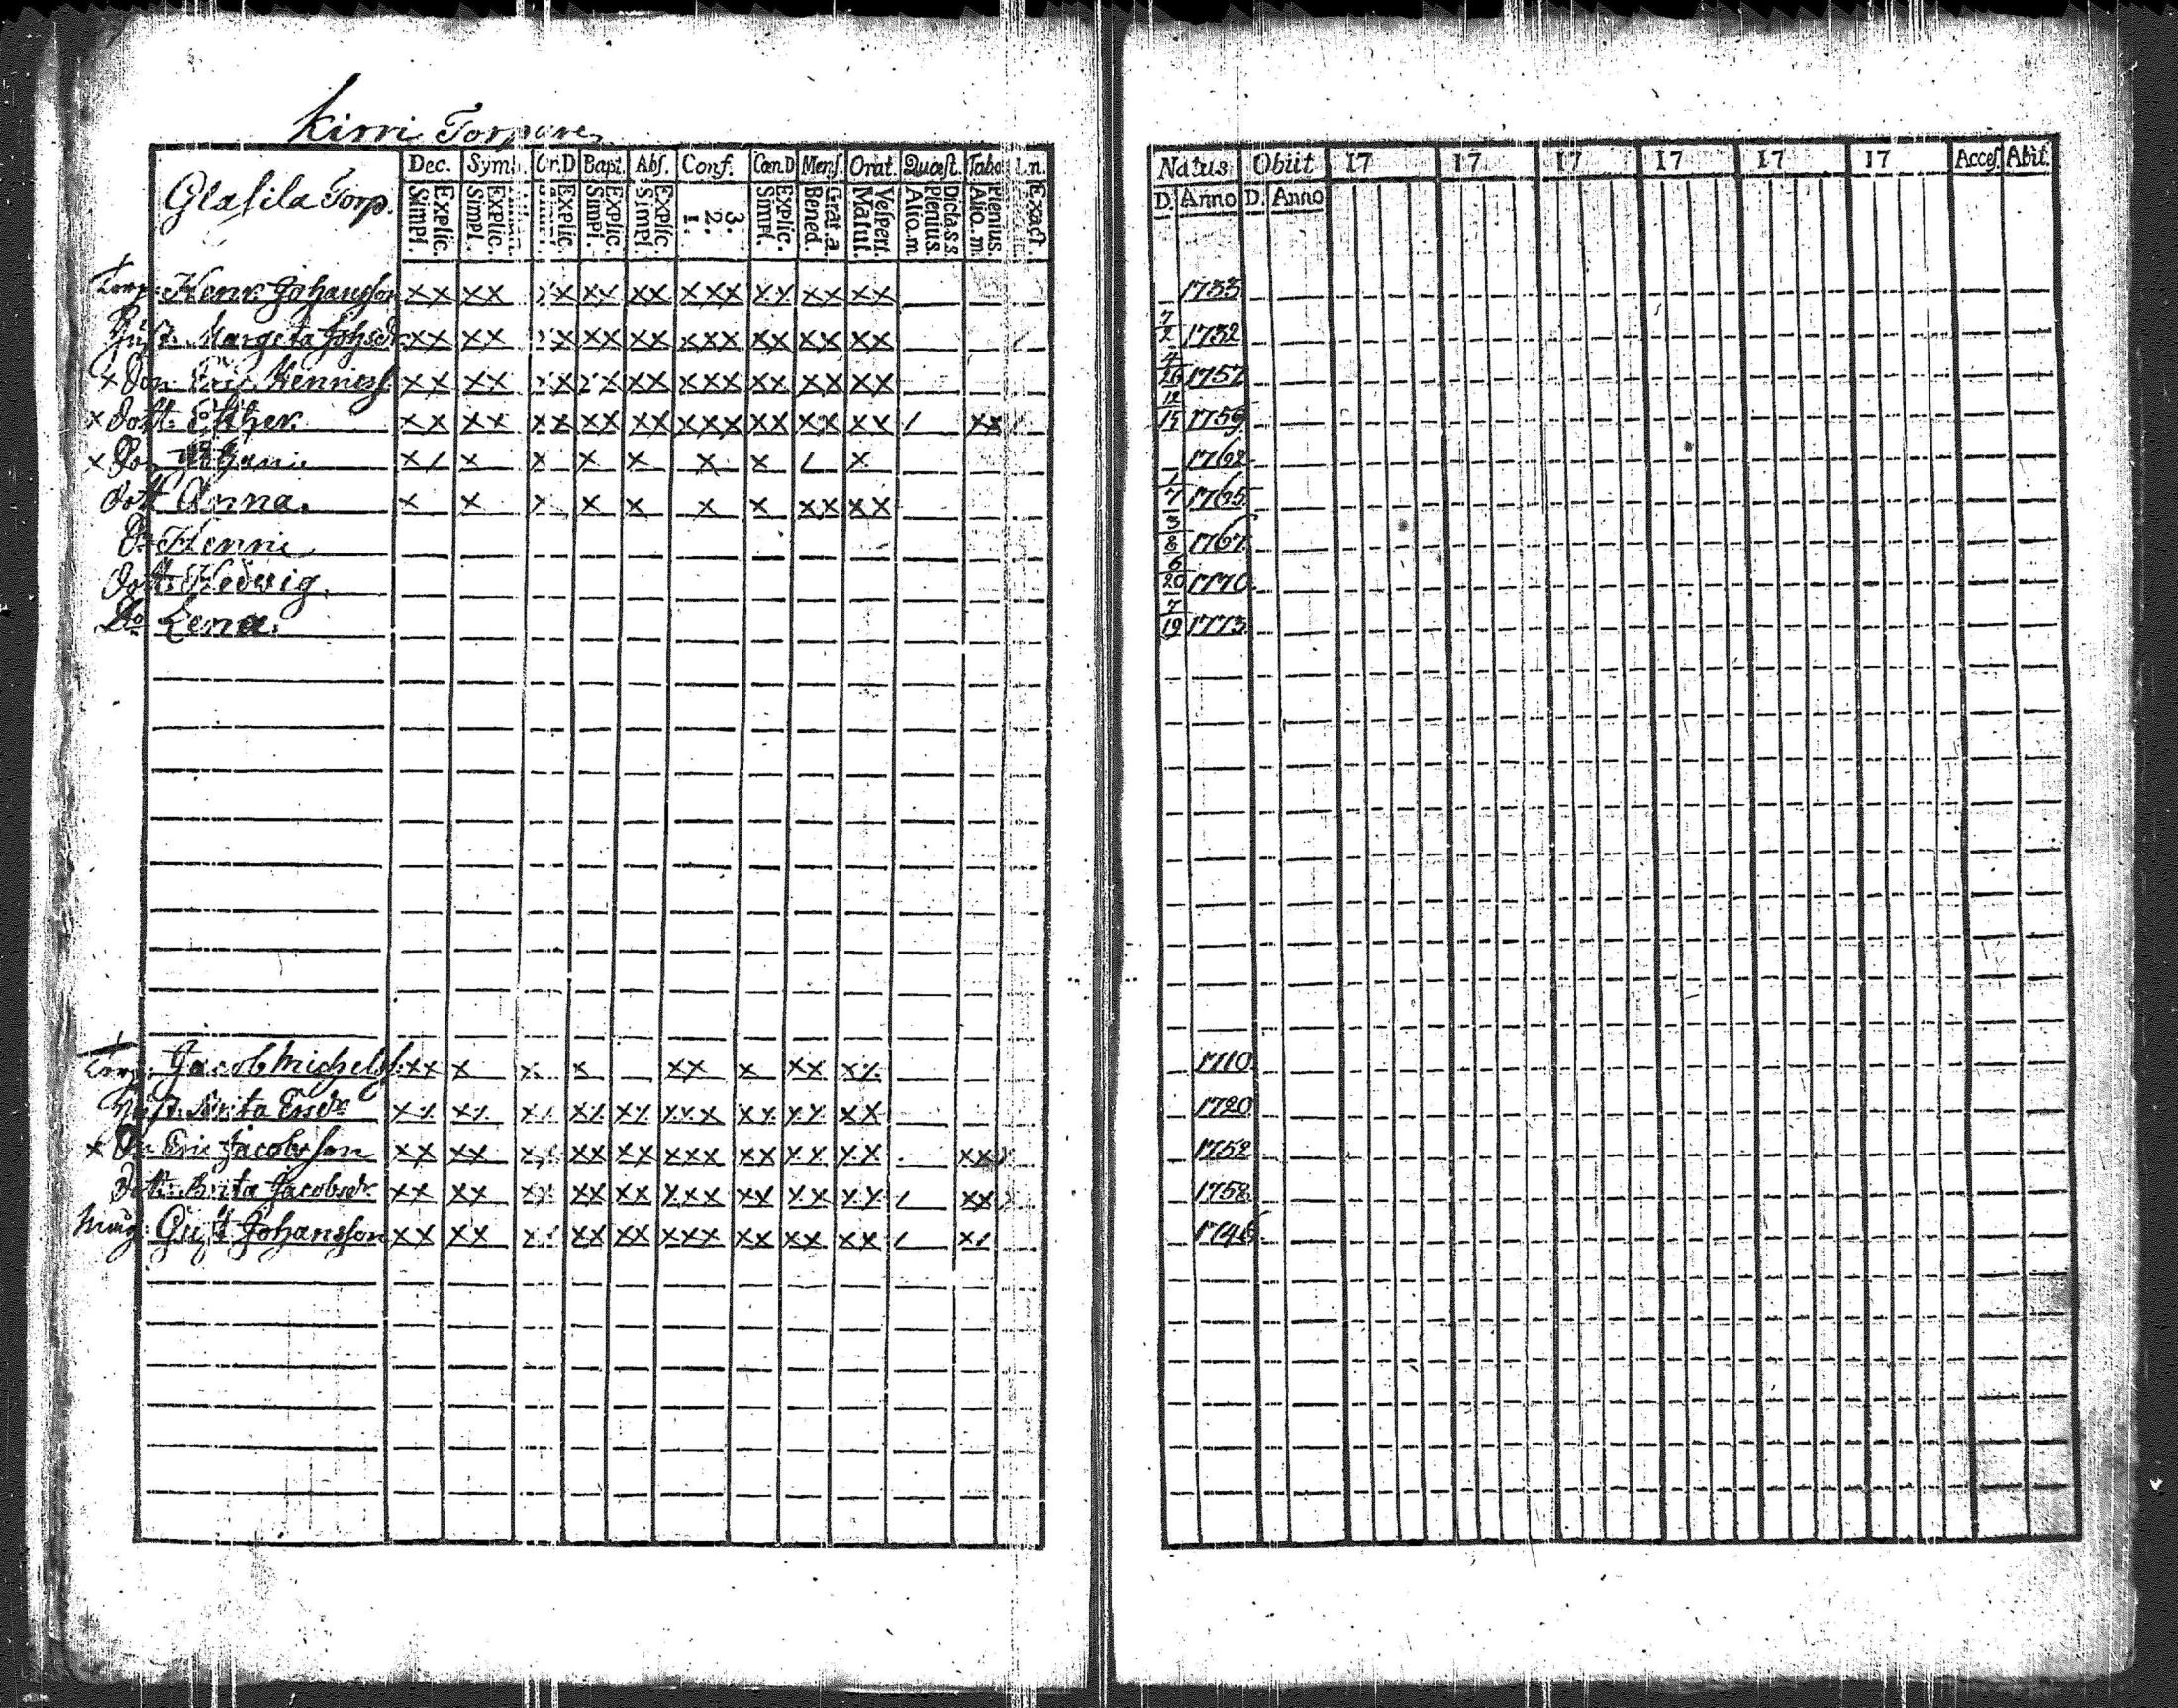 Kirri Torpare
Glasila Torp.
Dec. Symb. Or.D Bapt. Abs. Conf. Cœn.D Mens. Orat. Quæst. Tabo In.
Explic. Simpl. Explic. Simpl. Explic. Explic. Simpl. Explic. Simpl. 3. 2. 1. Explic. Simpl. Grat.a Bened. Vespert. Matut. Dicta s.s. Plenius. Alio.m Plenius. Alio.m Exact.
Natus Obiit 17 17 17 17 17 17 Acces. Abit.
D. Anno D. Anno
Torp. Henr. Johansson xx xx xx xx xx xxx xx xx xx 1733
Hust. Margeta Johsdr xx xx xx xx xx xxx xx xx xx 7/2 1732
x Son Eric Henricss. xx xx xx xx xx xxx xx xx xx 4/26 1757
x Dott. Esther xx xx xx xx xx xxx xx xx xx / xx 12/15 1759
x Son Johan x/ x x x x x x / x 1762
Dott Anna. x x x x x x x xx xx 1/7 1765
S. Henric 3/8 1767
Dott. Hedwig. 6/20 1770
Do Lena. 7/19 1773
Torp. Jacob Michelss. xx x x x xx x xx xx 1710
Hust. Brita Ersdr xx xx xx xx xx xxx xx xx xx 1720
x Son Eric Jacobsson xx xx xx xx xx xxx xx xx xx xx 1752
Dott. Brita Jacobsdr xx xx xx xx xx xxx xx xx xx / xx 1758
Måg: Gust Johansson xx xx xx xx xx xxx xx xx xx / x/ 1746